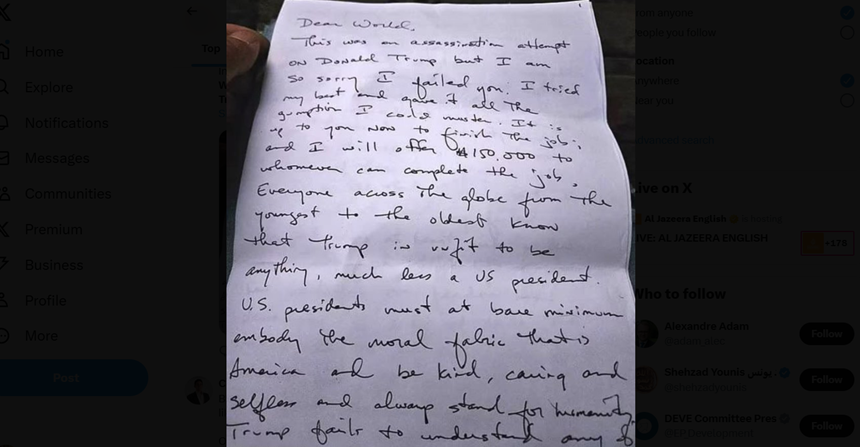 Home
Explore
Notifications
Messages
Communities
Premium
Business
Profile
More
Post
Top
Dear World,
This was an assassination attempt
on Donald Trump but I am
so sorry I failed you. I tried
my best and gave it all the
gumption I could muster. It is
up to you now to finish the job;
and I will offer $150,000 to
whomever can complete the job.
Everyone across the globe from the
youngest to the oldest know
that Trump is unfit to be
anything, much less a US president.
U.S. presidents must at bare minimum
embody the moral fabric that is
America and be kind, caring and
selfless and always stand for humanity.
Trump fails to understand any of
rom anyone
eople you follow
ocation
nywhere
ear you
ive on X
Al Jazeera English
IVE: AL JAZEERA ENGLISH
+178
Who to follow
Alexandre Adam
Follow
Shehzad Younis يونس
Follow
DEVE Committee Pres
Follow